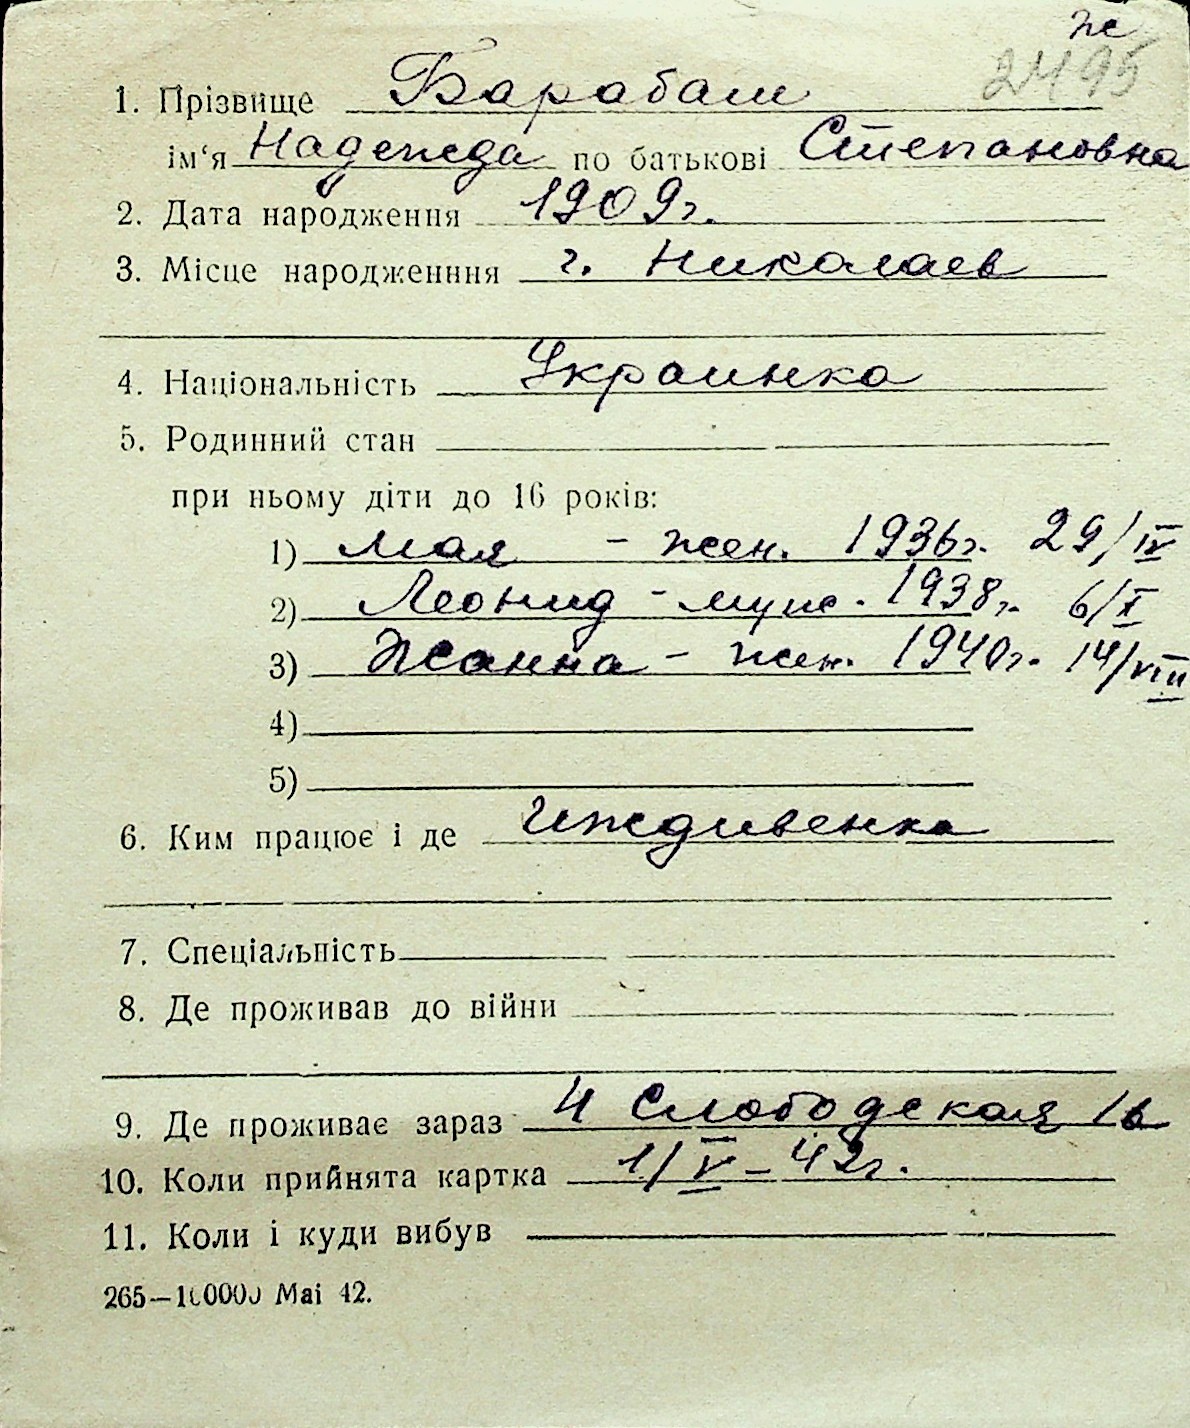 ж
2495
1. Прізвище Барабаш
ім‘я Надежда по батькові Степановна
2. Дата народження 1909г.
3. Місце народженння г. Николаев
4. Національність Украинка
5. Родинний стан
при ньому діти до 16 років:
1) Мая - жен. 1936г. 29/IV
2) Леонид - муж. 1938г. 6/X
3) Жанна - жен. 1940г. 14/VIII
4)
5)
6. Ким працює і де Иждивенка
7. Спеціальність
8. Де проживав до війни
9. Де проживає зараз 4 Слободская 1в
10. Коли прийнята картка 1/V - 42г.
11. Коли і куди вибув
265—100000 Mai 42.